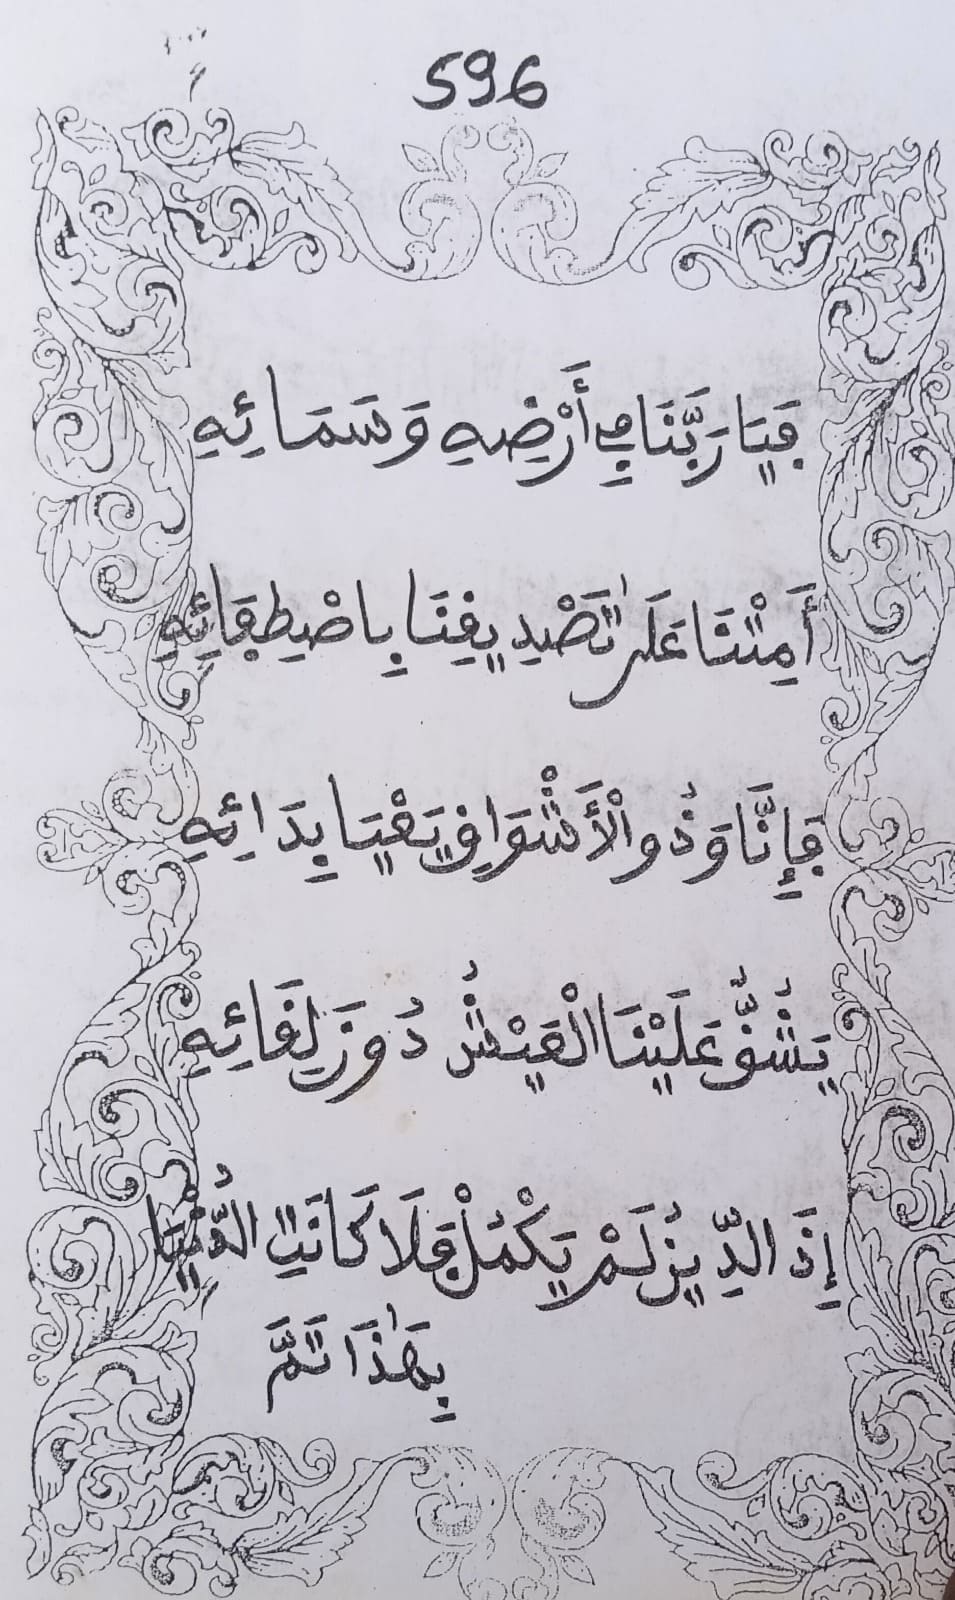 596
فَيَا رَبَّنَا فِي أَرْضِهِ وَسَمَائِهِ
أَمِتْنَا عَلَىٰ تَصْدِيقِنَا بِاصْطِفَائِهِ
فَإِنَّا وَذُو الْأَشْوَاقِ يَعْيَا بِدَائِهِ
يَشُقُّ عَلَيْنَا الْعَيْشُ دُونَ لِقَائِهِ
إِذَ الدِّينُ لَمْ يَكْمُلْ فَلَا كَانَتِ الدُّنْيَا
بِهَٰذَا تَمَّ